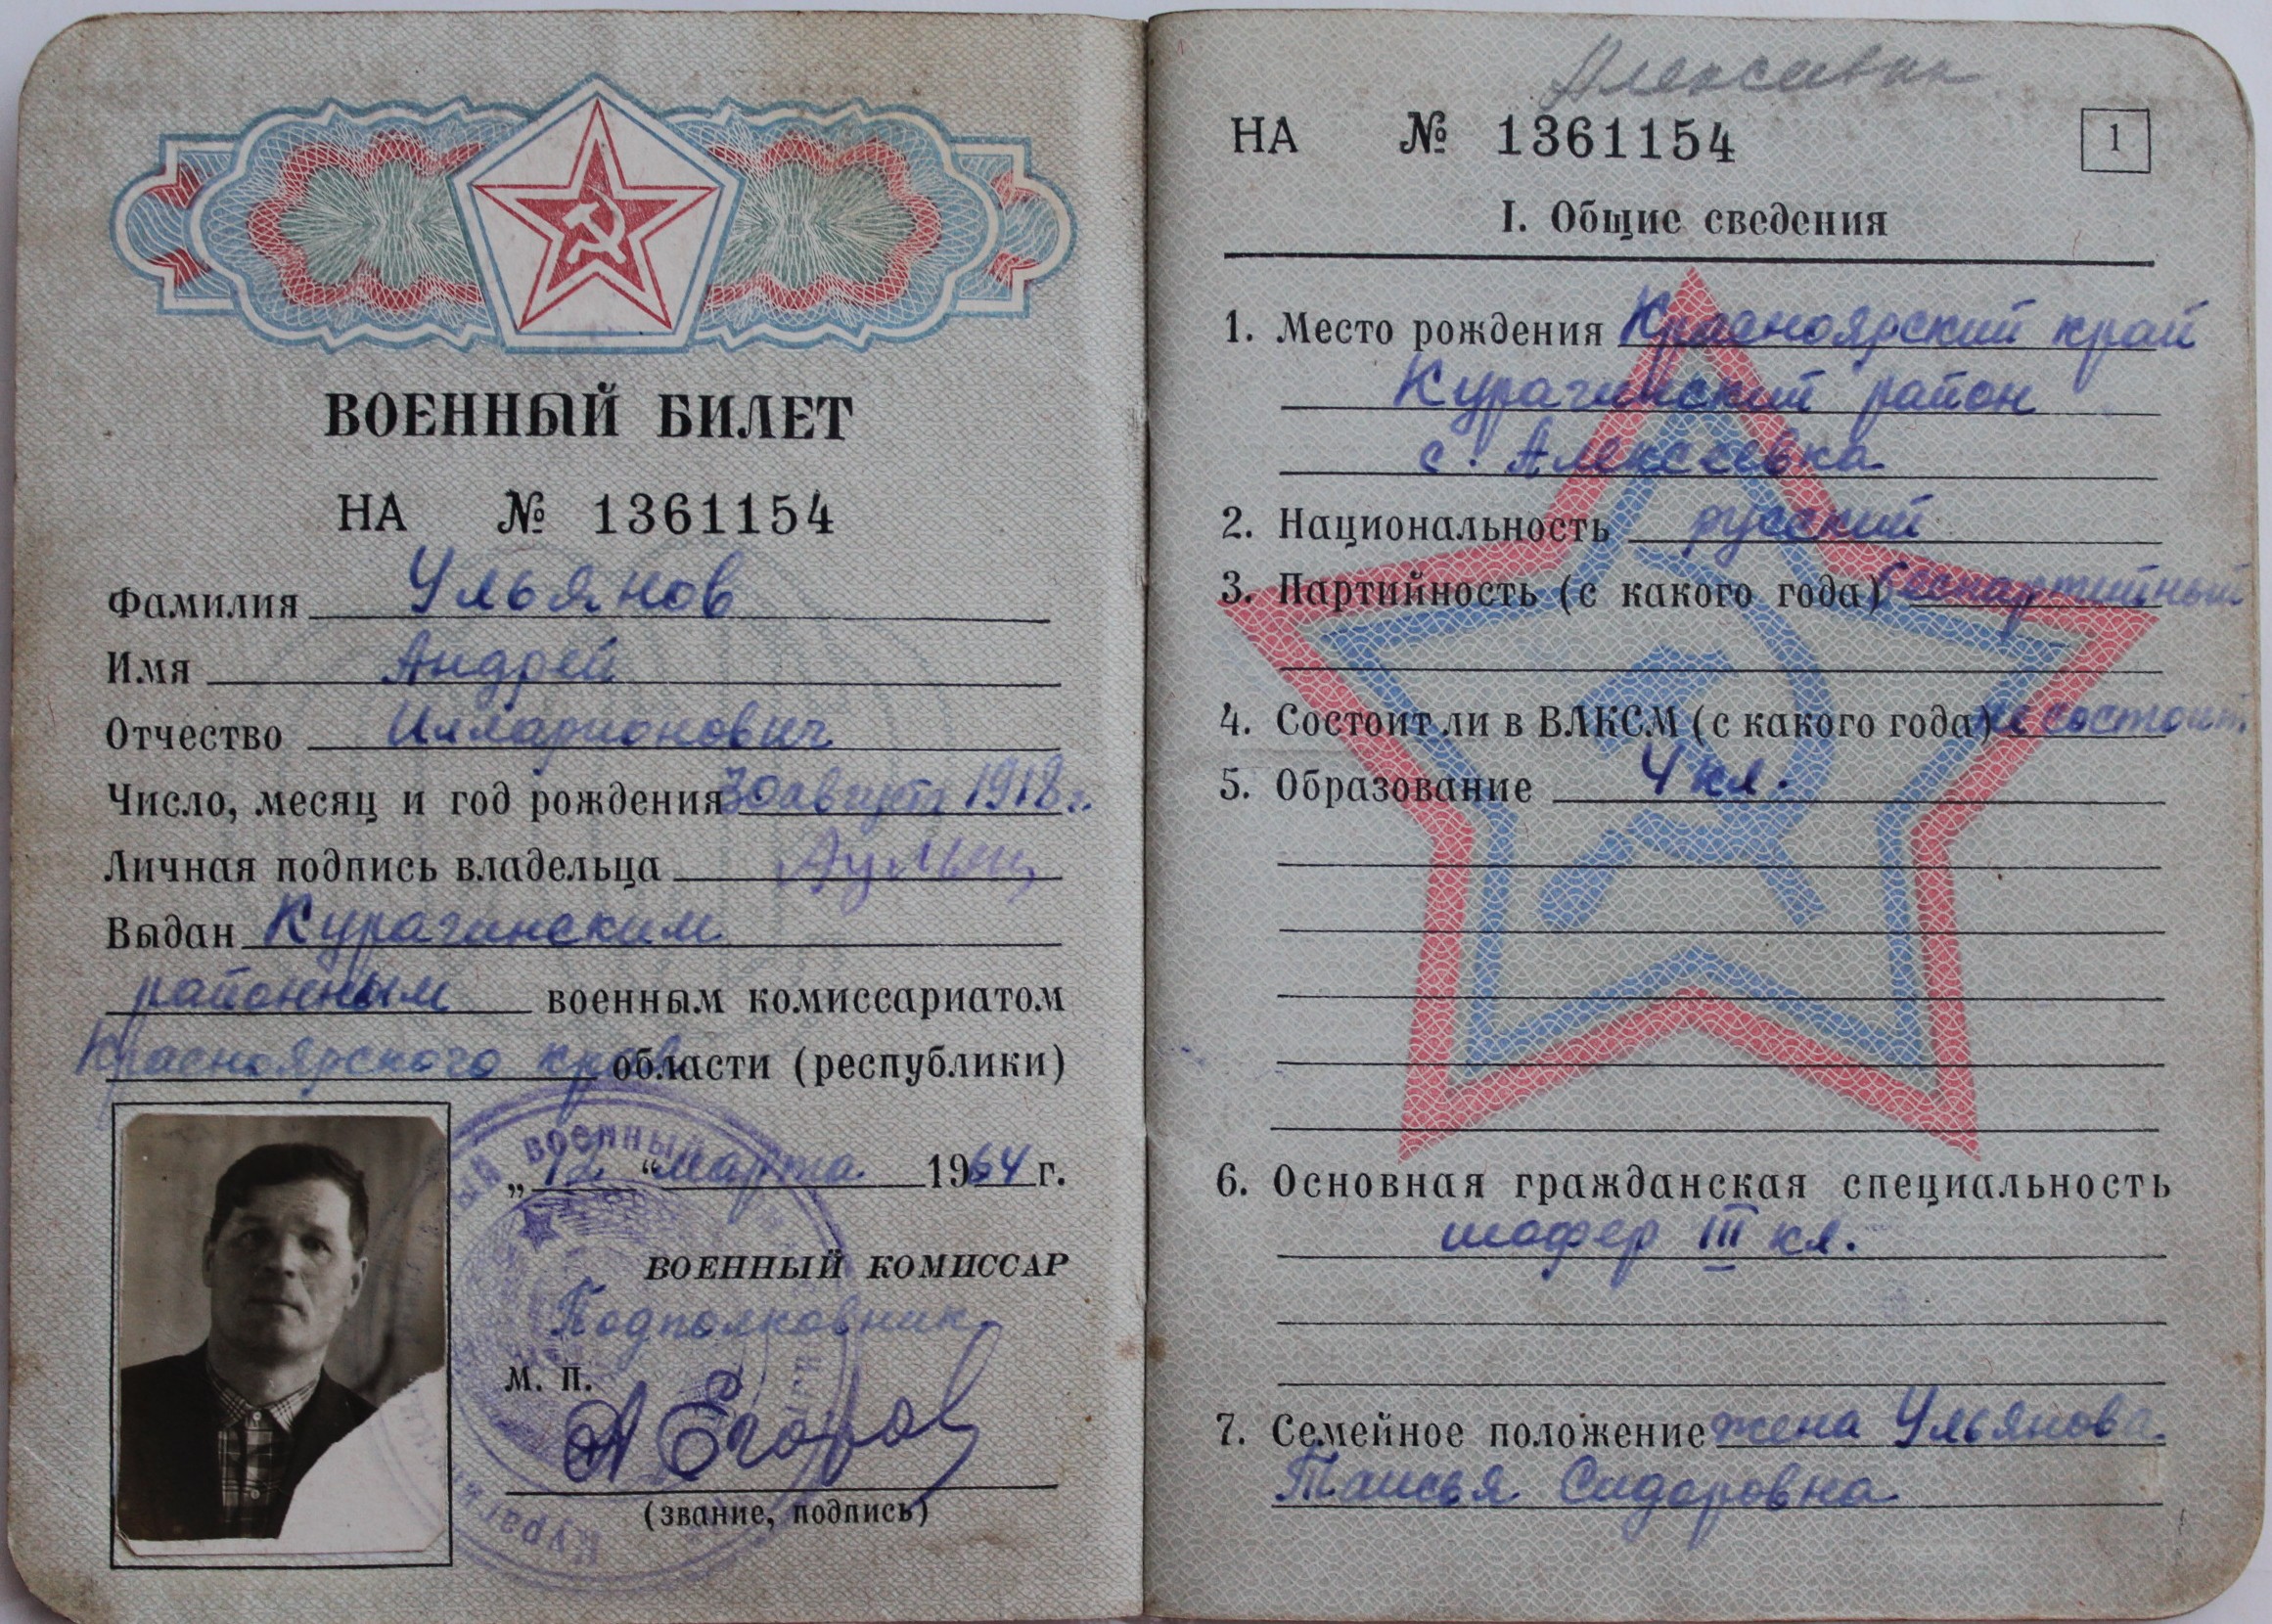 ВОЕННЫЙ БИЛЕТ
НА № 1361154
Фамилия Ульянов
Имя Андрей
Отчество Илларионович
Число, месяц и год рождения 30 августа 1918 г.
Личная подпись владельца
Выдан Курагинским
районным военным комиссариатом
Красноярского края области (республики)
„12“ марта 1964 г.
ВОЕННЫЙ КОМИССАР
Подполковник
М. П.
А Егоров
(звание, подпись)
ВОЕННЫЙ
Кураг
НА № 1361154
1
I. Общие сведения
1. Место рождения Красноярский край
Курагинский район
с. Алексеевка
2. Национальность русский
3. Партийность (с какого года) беспартийный
4. Состоит ли в ВЛКСМ (с какого года) не состоит.
5. Образование 4 кл.
6. Основная гражданская специальность
шофер III кл.
7. Семейное положение жена Ульянова
Таисья Сидоровна